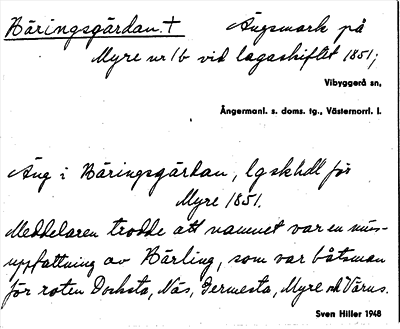 Bäringsgärdan.† Ängsmark på
Myre nr 1b vid lagaskiftet 1851;
Vibyggerå sn,
Ångermanl. s. doms. tg., Västernorrl. l.
Äng i Bäringsgärdan, lgskhdl för
Myre 1851.
Meddelaren trodde att namnet var en miss-
uppfattning av Bärling, som var båtsman
för roten Docksta, Näs, Germesta, Myre och Värns.
Sven Hiller 1948